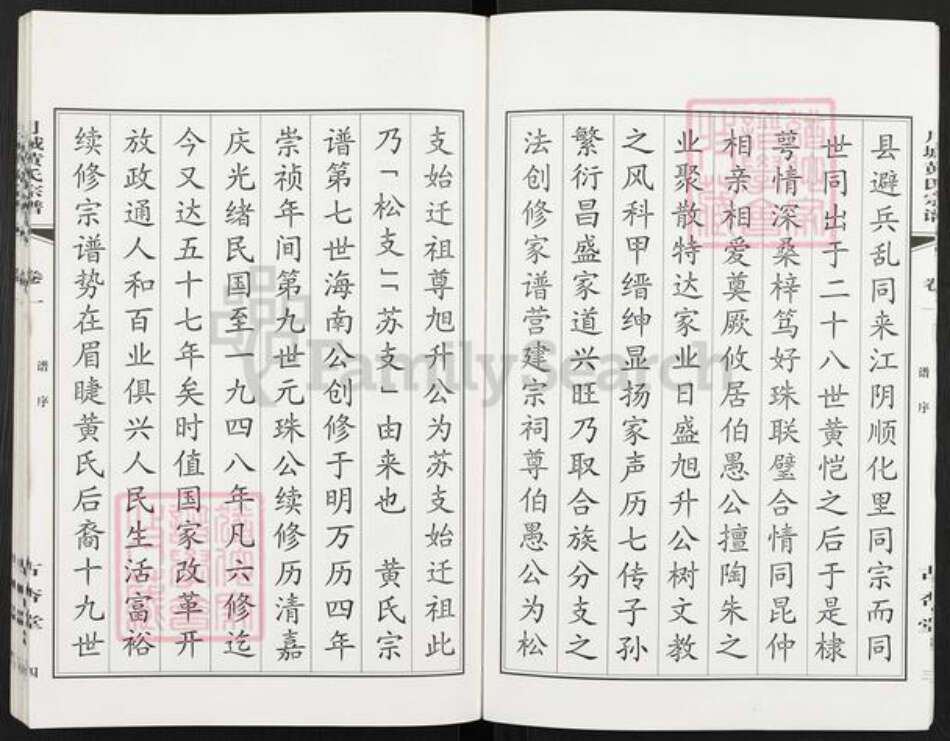 县避兵乱同来江阴顺化里同宗而同
世同出于二十八世黄恺之后于是棣
萼情深桑梓笃好珠联璧合情同昆仲
相亲相爱奠厥攸居伯愚公擅陶朱之
业聚散特达家业日盛旭升公树文教
之风科甲缙绅显扬家声历七传子孙
繁衍昌盛家道兴旺乃取合族分支之
法创修家谱营建宗祠尊伯愚公为松
谱序
三
支始迁祖尊旭升公为苏支始迁祖此
乃「松支」「苏支」由来也　黄氏宗
谱第七世海南公创修于明万历四年
崇祯年间第九世元珠公续修历清嘉
庆光绪民国至一九四八年凡六修迄
今又达五十七年矣时值国家改革开
放政通人和百业俱兴人民生活富裕
续修宗谱势在眉睫黄氏后裔十九世
城黄氏宗谱
卷一
谱序
四
FamilySearch